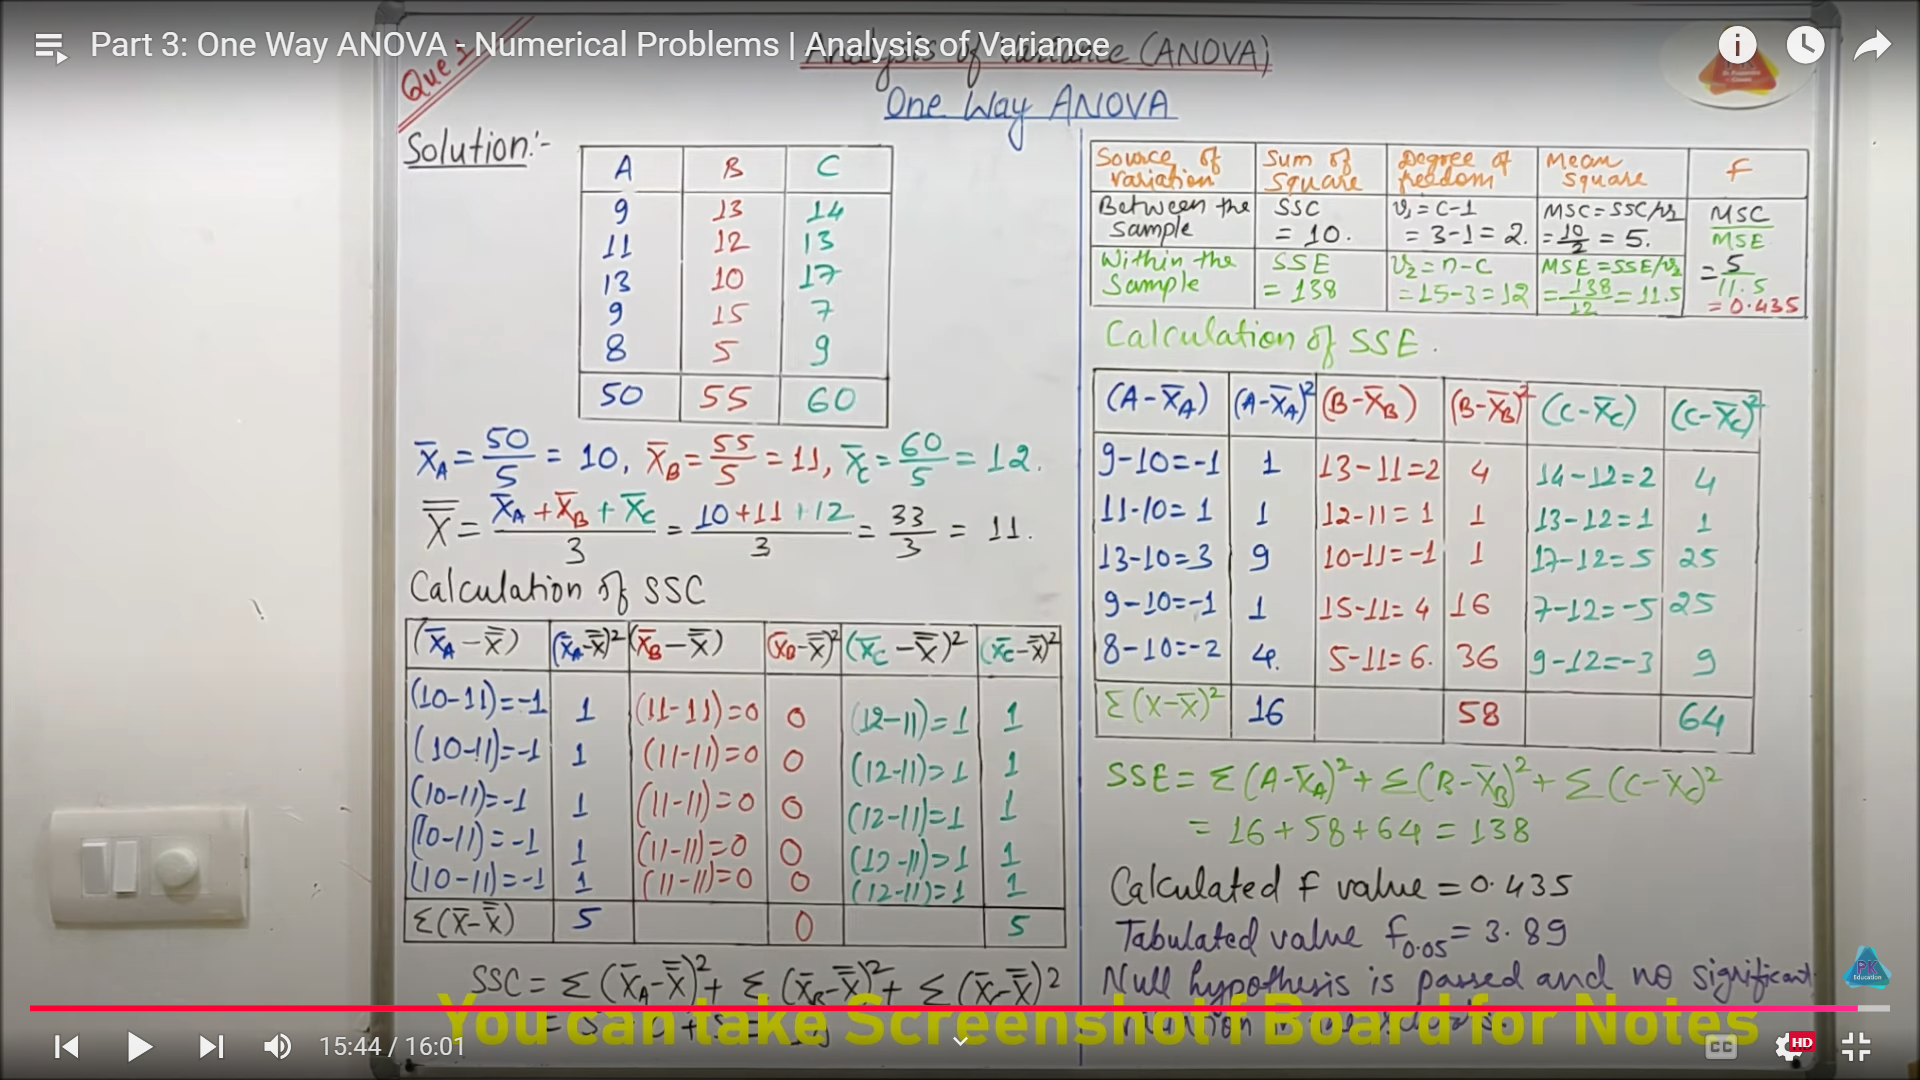 Part 3: One Way ANOVA - Numerical Problems | Analysis of Variance
Analysis of Variance (ANOVA)
Que 1
One Way ANOVA
Solution:-
A B C
9 13 14
11 12 13
13 10 17
9 15 7
8 5 9
50 55 60
X̄A = 50/5 = 10, X̄B = 55/5 = 11, X̄C = 60/5 = 12.
X̿ = X̄A + X̄B + X̄C / 3 = 10+11+12 / 3 = 33/3 = 11.
Calculation of SSC
(X̄A - X̿) (X̄A - X̿)² (X̄B - X̿) (X̄B - X̿)² (X̄C - X̿)² (X̄C - X̿)²
(10-11)=-1 1 (11-11)=0 0 (12-11)=1 1
(10-11)=-1 1 (11-11)=0 0 (12-11)=1 1
(10-11)=-1 1 (11-11)=0 0 (12-11)=1 1
(10-11)=-1 1 (11-11)=0 0 (12-11)=1 1
(10-11)=-1 1 (11-11)=0 0 (12-11)=1 1
Σ(X̄-X̿) 5 0 5
SSC = Σ(X̄A-X̿)² + Σ(X̄B-X̿)² + Σ(X̄C-X̿)²
Source of variation Sum of Square Degree of freedom Mean square F
Between the Sample SSC = 10. v₁ = C-1 = 3-1 = 2. MSC = SSC/v₁ = 10/2 = 5. MSC/MSE
Within the Sample SSE = 138 v₂ = n-c = 15-3 = 12 MSE = SSE/v₂ = 138/12 = 11.5 = 5/11.5 = 0.435
Calculation of SSE.
(A-X̄A) (A-X̄A)² (B-X̄B) (B-X̄B)² (C-X̄C) (C-X̄C)²
9-10=-1 1 13-11=2 4 14-12=2 4
11-10=1 1 12-11=1 1 13-12=1 1
13-10=3 9 10-11=-1 1 17-12=5 25
9-10=-1 1 15-11=4 16 7-12=-5 25
8-10=-2 4. 5-11=6. 36 9-12=-3 9
Σ(X-X̄)² 16 58 64
SSE = Σ(A-X̄A)² + Σ(B-X̄B)² + Σ(C-X̄C)²
= 16 + 58 + 64 = 138
Calculated F value = 0.435
Tabulated value F0.05 = 3.89
Null hypothesis is passed and no significant
You can take Screenshot f Board for Notes
PK
Education
15:44 / 16:01
CC
HD